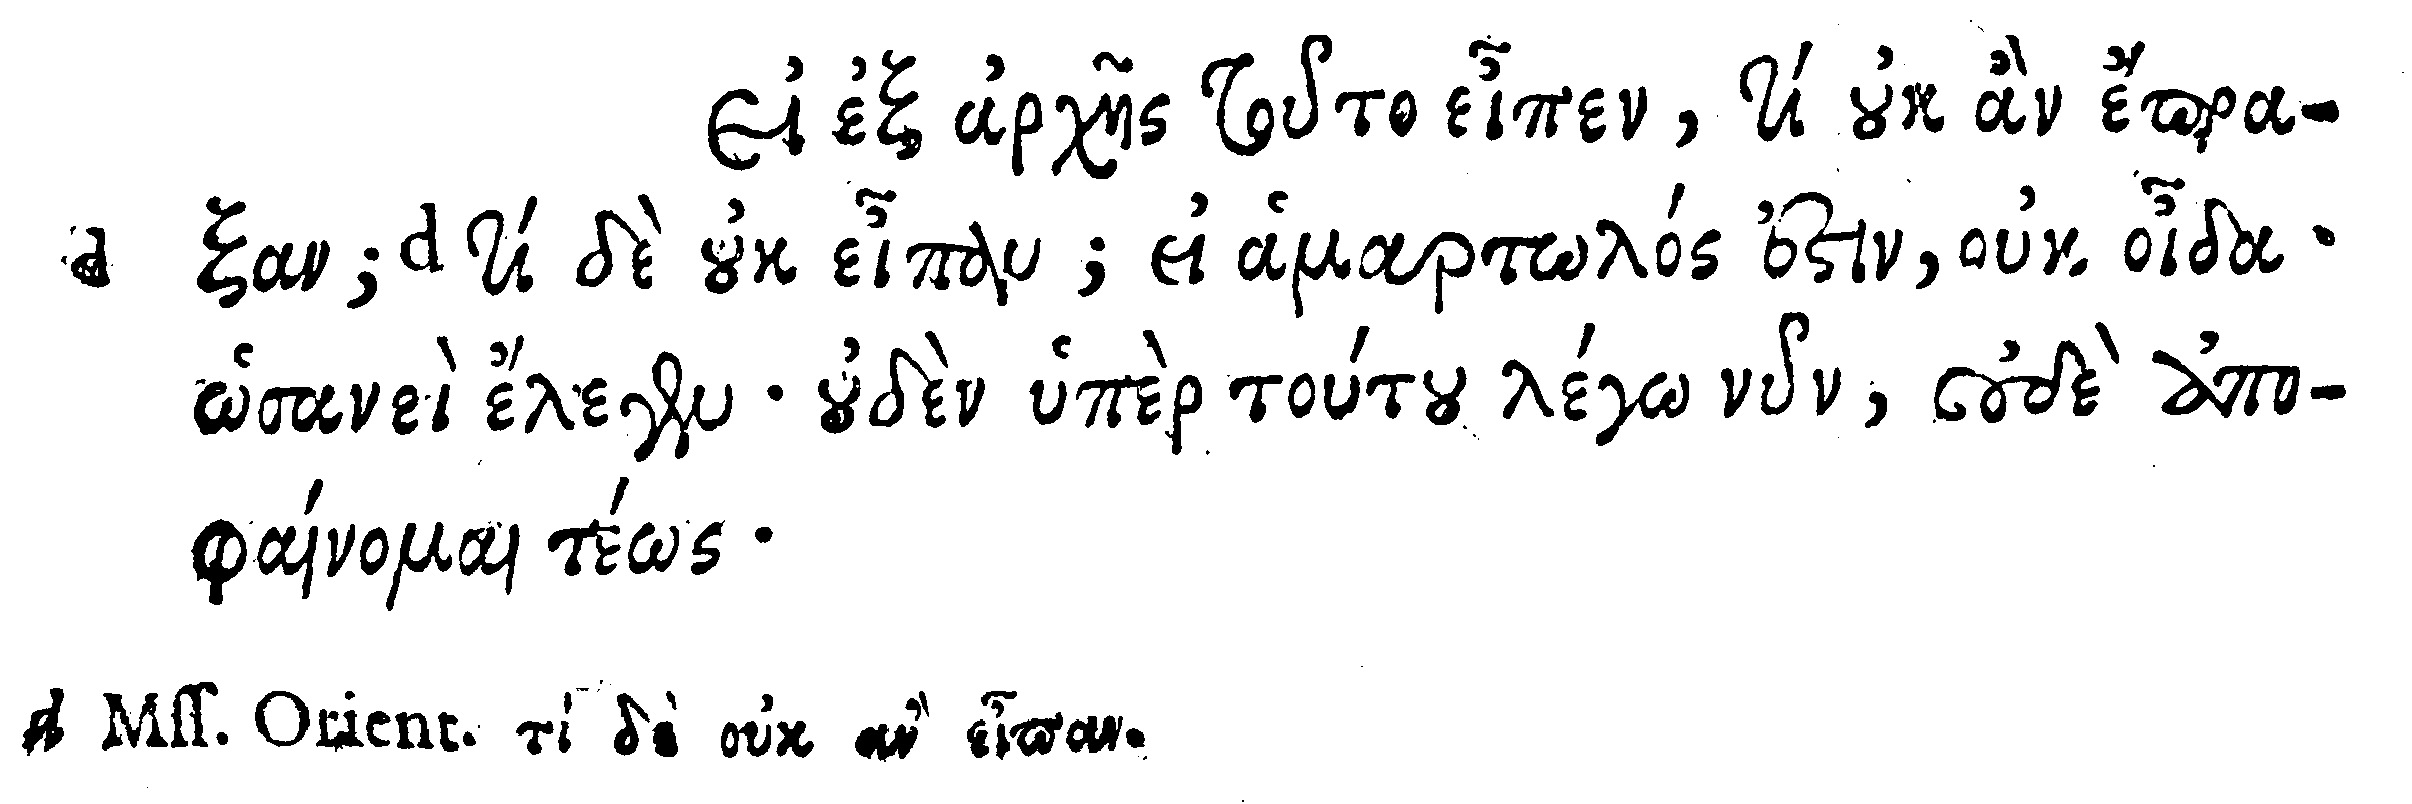 εἰ ἐξ ἀρχῆς τοῦτο εἶπεν, τί οὐκ ἂν ἔπρα-
d ξαν; d τί δὲ οὐκ εἶπον; εἰ ἁμαρτωλός ἐστιν, οὐκ οἶδα·
ὡσανεὶ ἔλεγον· οὐδὲν ὑπὲρ τούτου λέγω νῦν, οὐδὲ ἀπο-
φαίνομαι τέως·
d Mſſ. Orient. τί δὲ οὐκ ἂν εἶπαν.